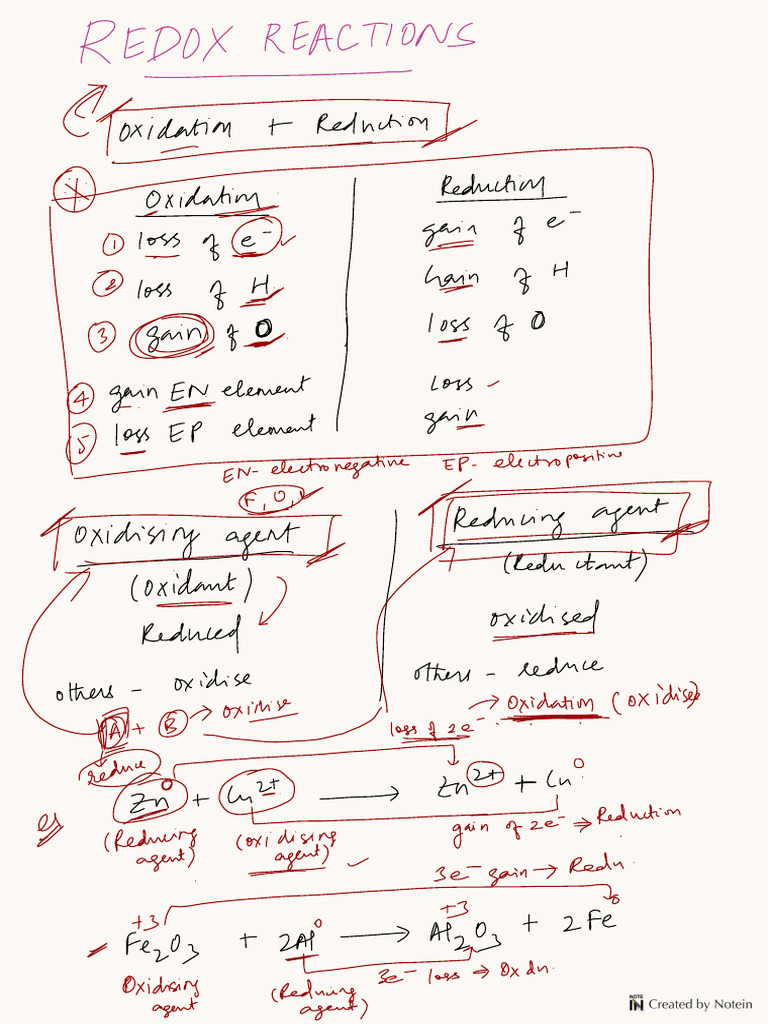 REDOX REACTIONS
Oxidation + Reduction
Oxidation Reduction
① loss of e⁻ gain of e⁻
② loss of H Gain of H
③ gain of O loss of O
④ gain EN element Loss
⑤ loss EP element gain
EN - electronegative EP - electropositive
F, O,
Oxidising agent Reducing agent
(Oxidant) (Reductant)
Reduced oxidised
others - oxidise others - reduce
A + B → oxidise loss of 2e⁻ → Oxidation (oxidise
reduce
eg Zn⁰ + Cu²⁺ → Zn²⁺ + Cu⁰
(Reducing agent) (oxidising agent) gain of 2e⁻ ⇒ Reduction
3e⁻ gain → Redn.
+3 0 +3 0
Fe₂O₃ + 2Al → Al₂O₃ + 2Fe
Oxidising agent (Reducing agent) 3e⁻ loss → Oxdn.
NOTE IN Created by Notein